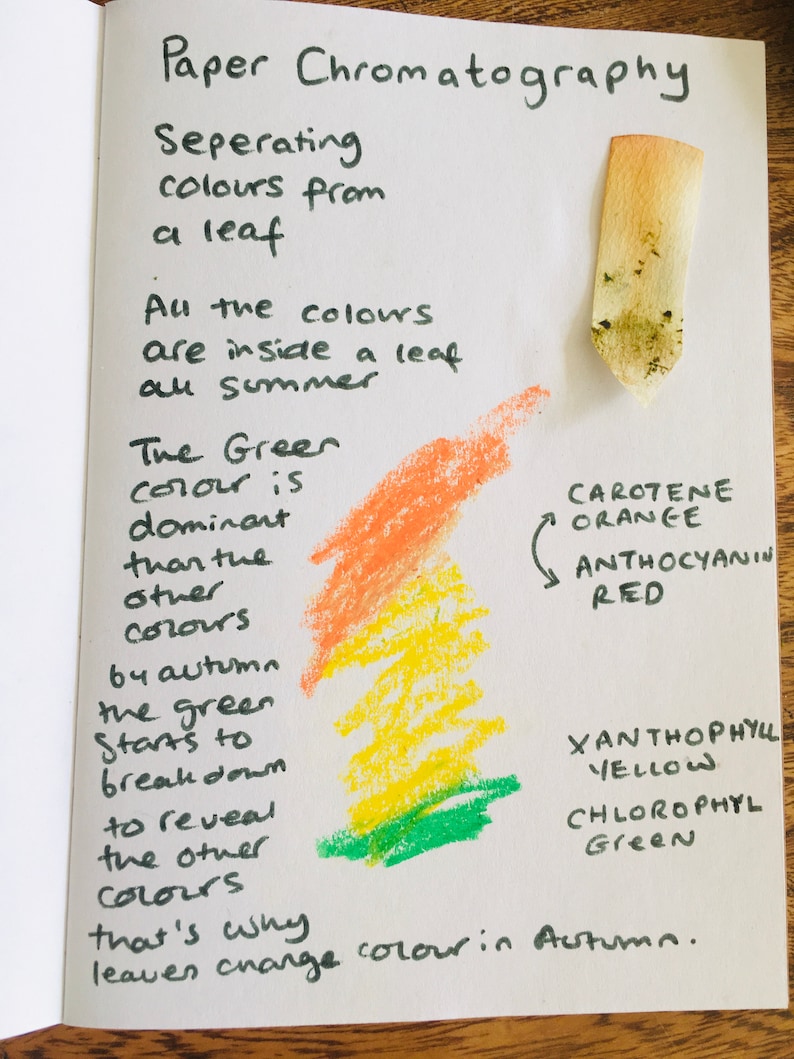 Paper Chromatography
Seperating
colours from
a leaf
All the colours
are inside a leaf
all summer
The Green
colour is
dominant
than the
other
colours
by autumn
the green
starts to
breakdown
to reveal
the other
colours
that's why
leaves change colour in Autumn.
CAROTENE
ORANGE
ANTHOCYANIN
RED
XANTHOPHYLL
YELLOW
CHLOROPHYL
Green